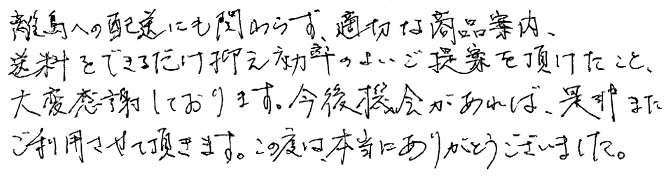 離島への配送にも関わらず、適切な商品案内、
送料をできるだけ抑え効率のよいご提案を頂けたこと、
大変感謝しております。今後機会があれば、是非また
ご利用させて頂きます。この度は、本当にありがとうございました。